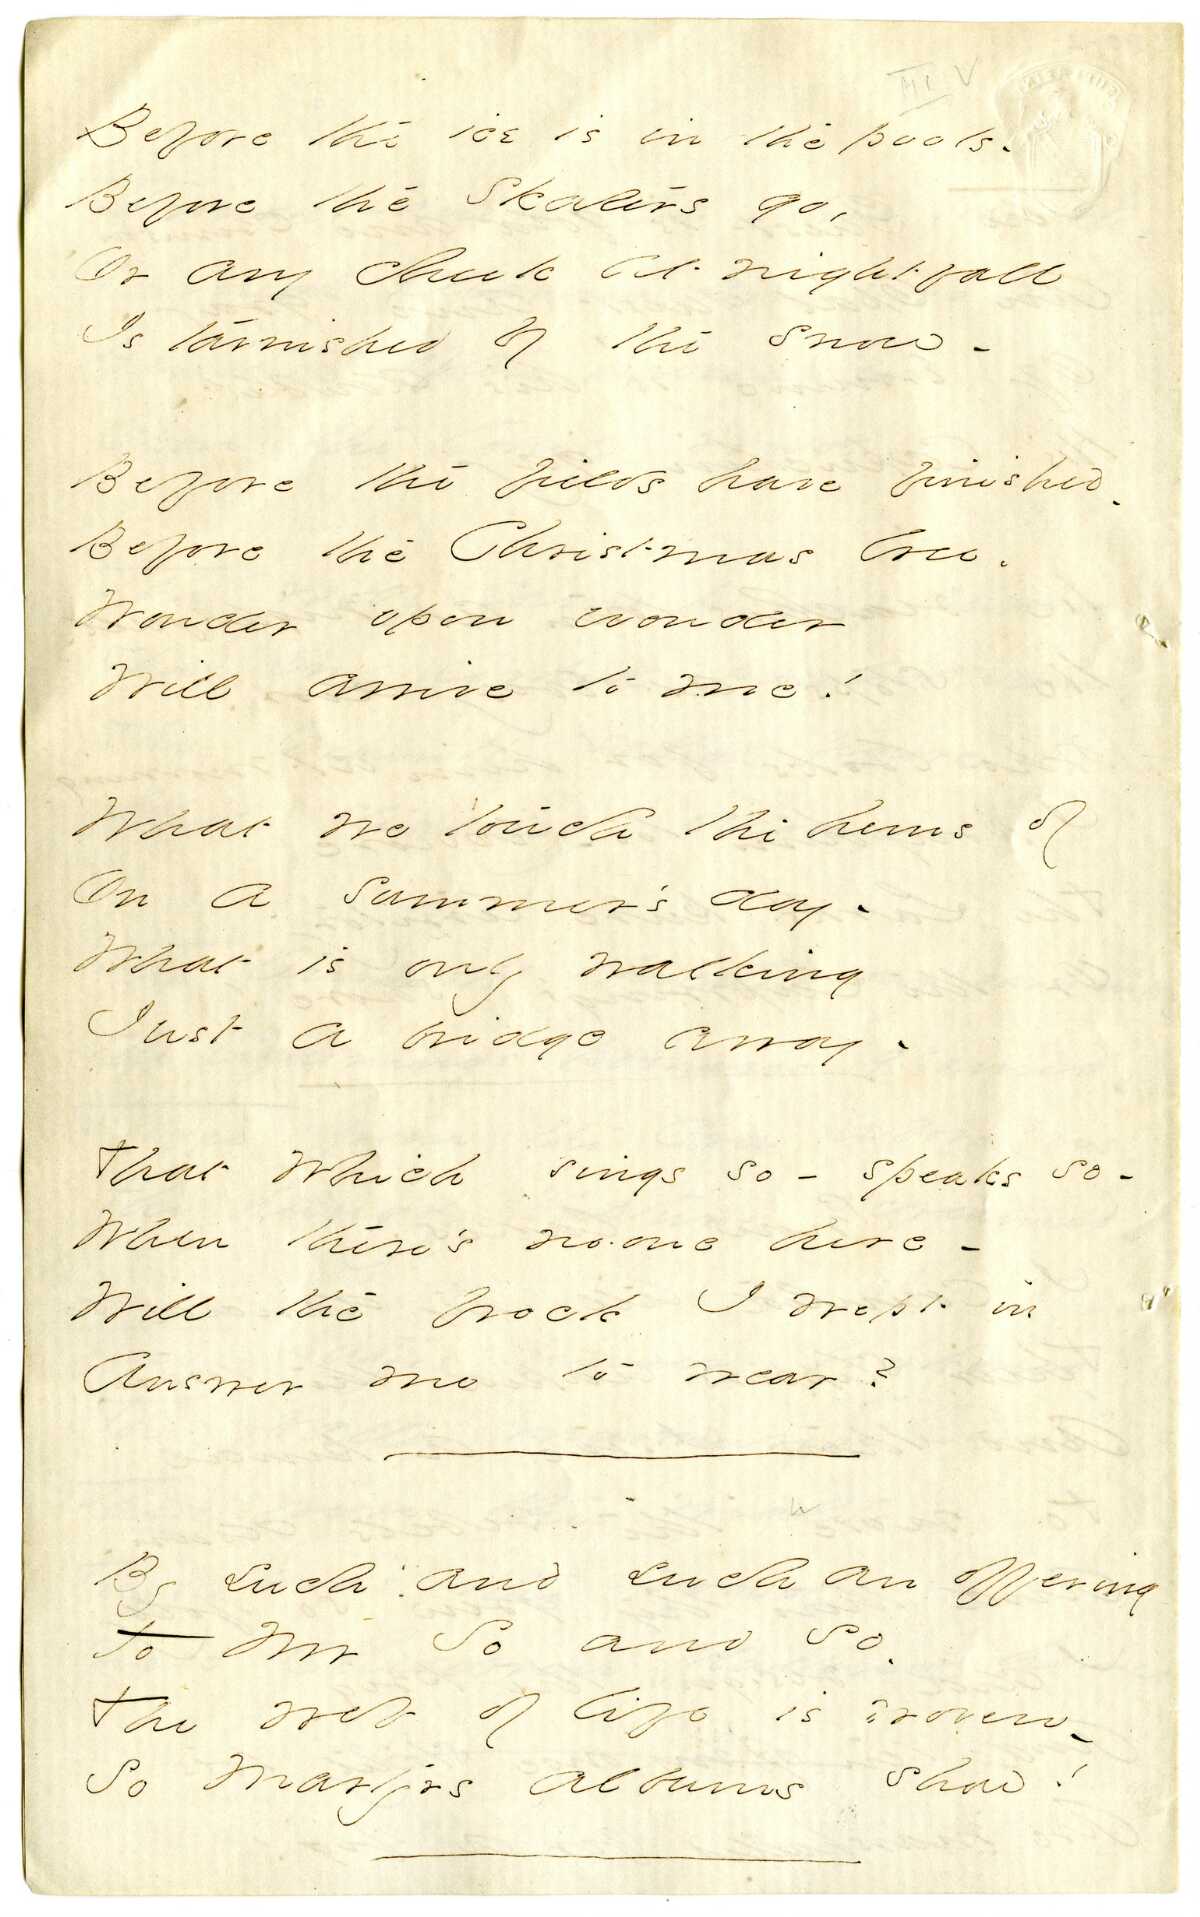 III V
Before the ice is in the pools -
Before the skaters go,
Or any cheek at nightfall
Is tarnished by the snow -
Before the fields have finished -
Before the Christmas tree,
Wonder upon wonder
Will arrive to me!
What we touch the hems of
On a summer's day -
What is only walking
Just a bridge away -
That which sings so - speaks so -
When there's no one here -
Will the frock I wept in
Answer me to wear?
By such and such an offering
To Mr So and So -
The web of life is woven -
So martyrs albums show!